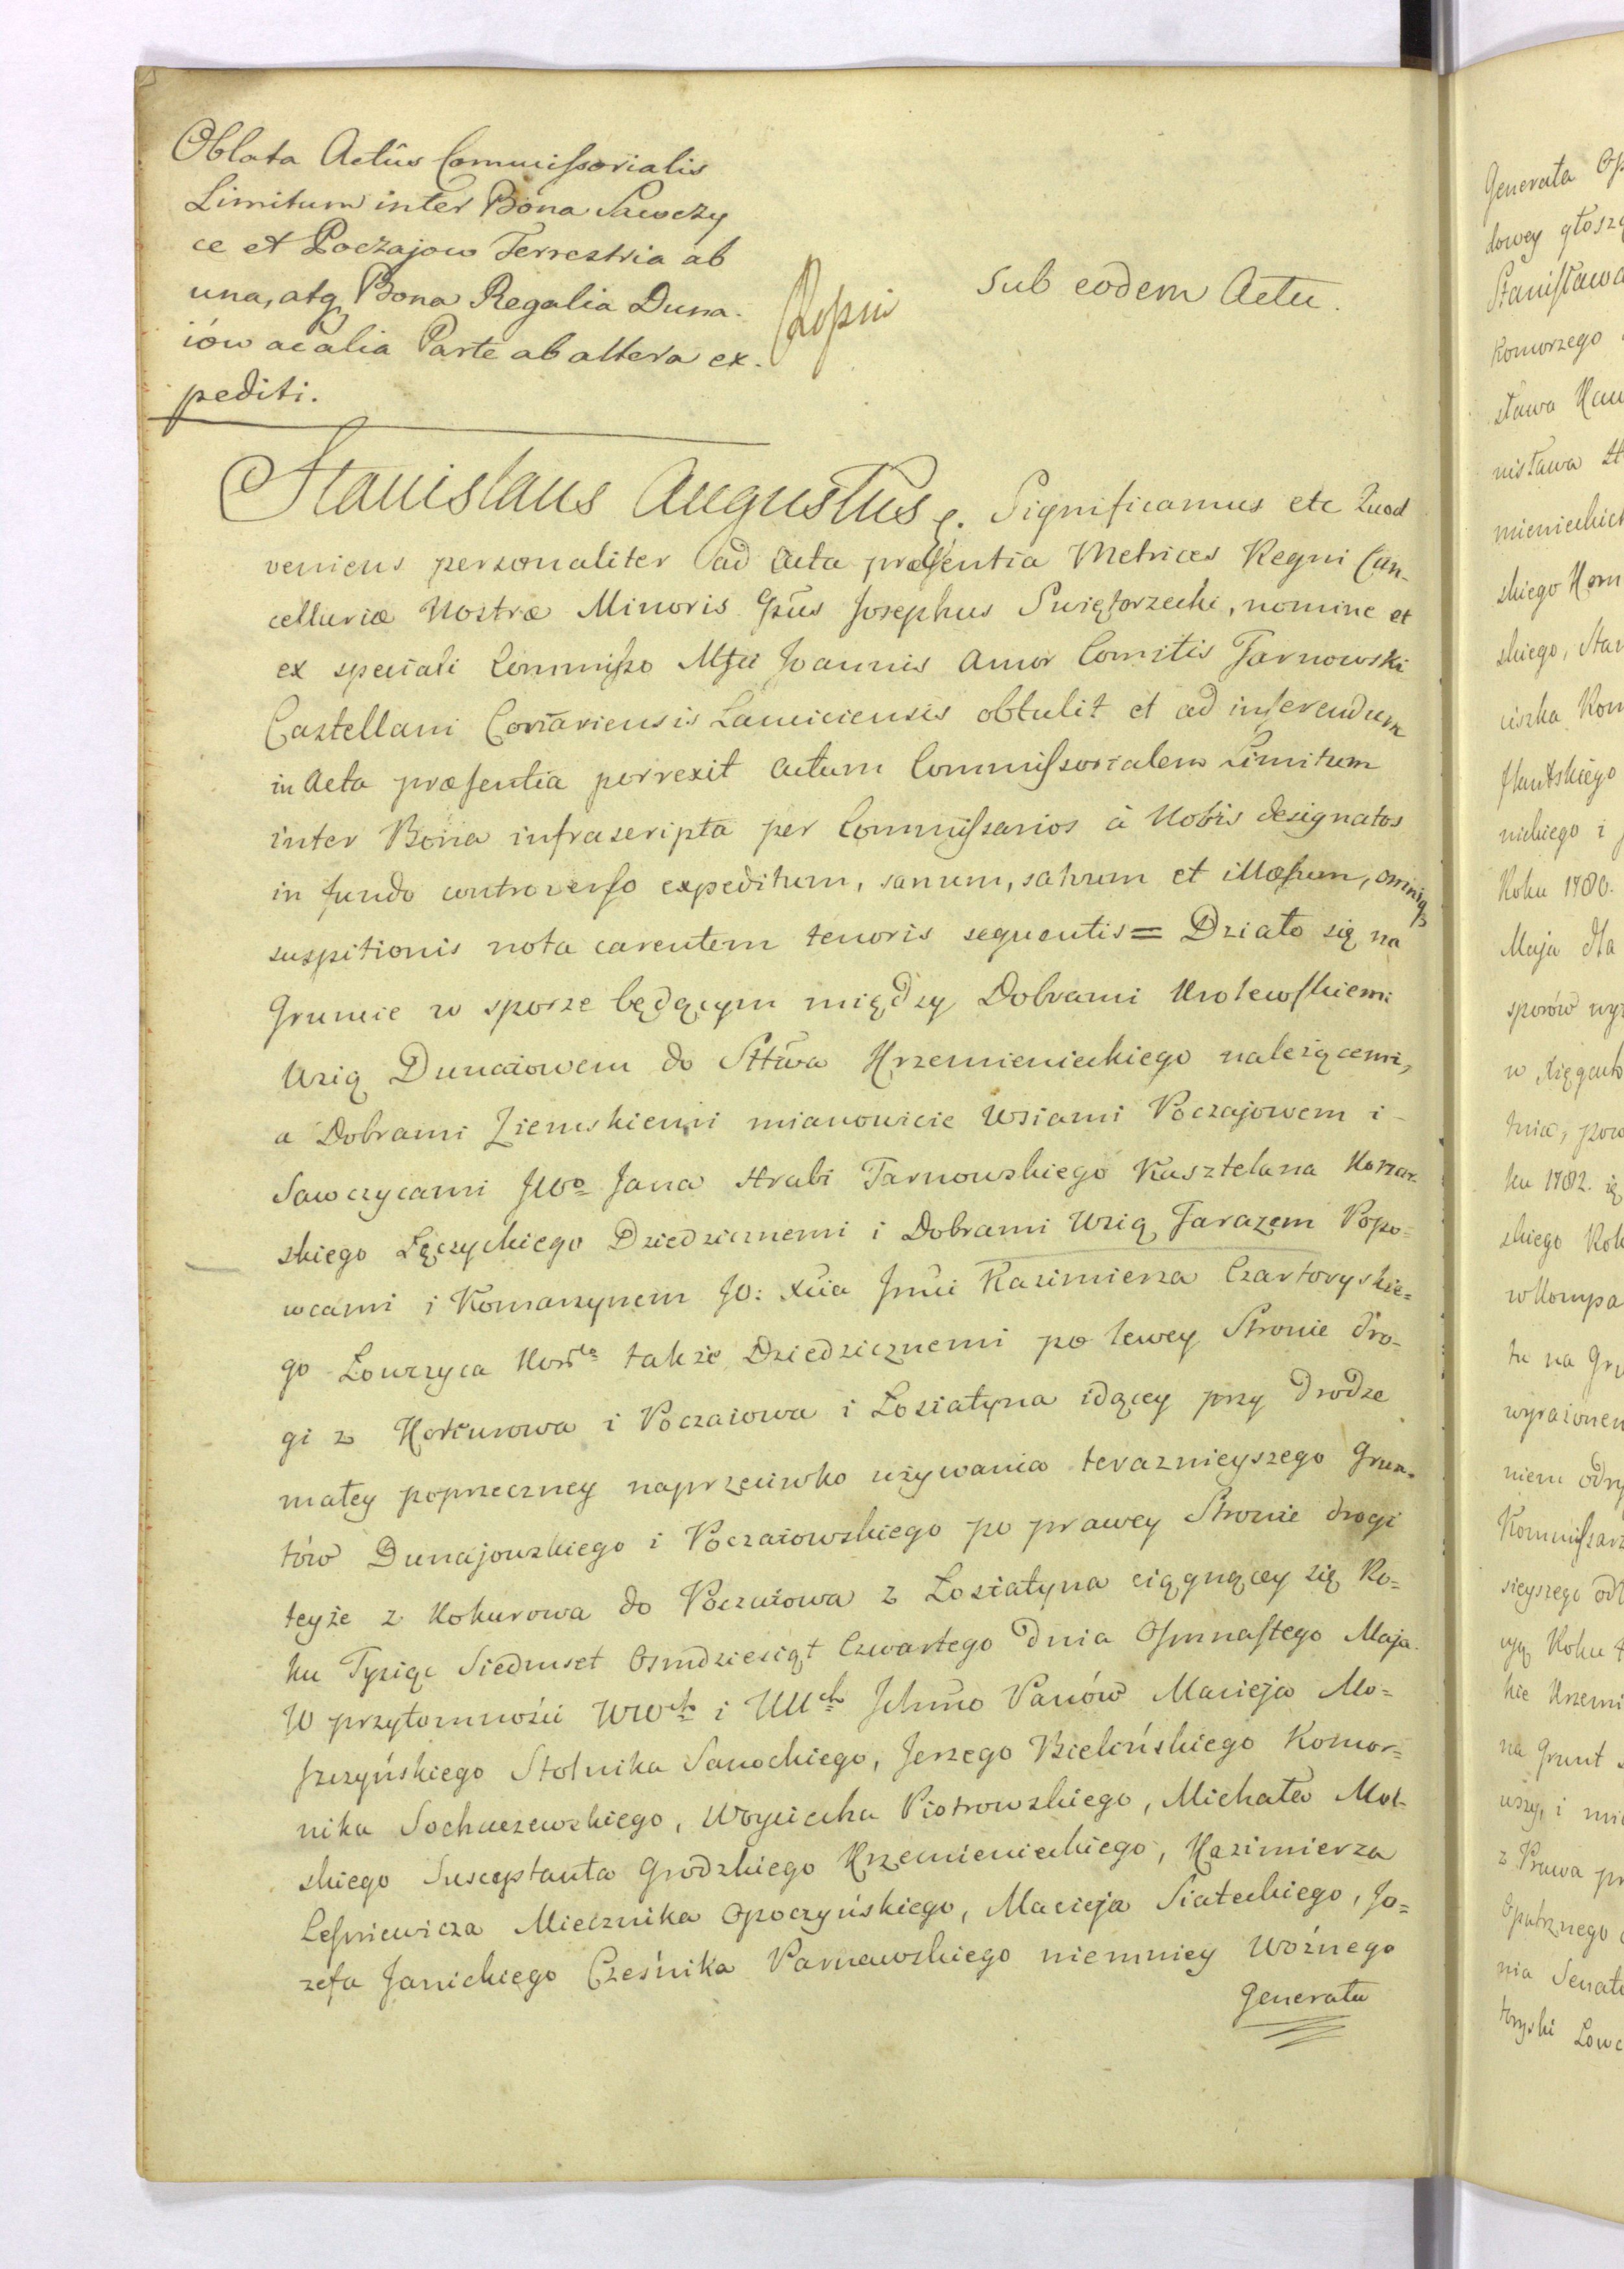 Oblata Actûs Commissorialis
Limitum inter Bona Sawczy
ce et Poczajow Terrestria ab
una, atq Bona Regalia Duna-
iów ac alia Parte ab altera ex-
pediti.
Sub eodem Actu.
Stanislaus Augustus Significamus etc Quod
veniens personaliter ad Acta præsentia Metrices Regni Can-
cellariæ Nostræ Minoris Gsūs Josephus Swięt­orzecki, nomine et
ex speciali Commisso Mfci Joannis Amor Comitis Tarnowski
Castellani Conariensis Lanciciensis obtulit et ad inserendum
in Acta præsentia porrexit Actum Commissorialem Limitum
inter Bona infrascripta per Commissarios à Nobis designatos
in fundo controverso expeditum, sanum, salvum et illæsum, omniq
suspitionis nota carentem tenoris sequentis = Działo się na
Gruncie w sporze będącym między Dobrami Krolewskiemi
Wsią Dunaiowem do Sttwa Krzemienieckiego należącemi,
a Dobrami Ziemskiemi mianowicie Wsiami Poczajowem i
Sawczycami JWo Jana Hrabi Tarnowskiego Kasztelana Konar-
skiego Łęczyckiego Dziedzicznemi i Dobrami Wsią Tarazem Popo-
wcami i Komarzynem JO: Xcia Jmci Kazimierza Czartoryskie-
go Łowczyca Kor. także Dziedzicznemi po lewey Stronie dro-
gi z Kokurowa i Poczaiowa i Łosiatyna idącey przy drodze
małey poprzeczney naprzeciwko używania teraznieyszego Grun-
tów Dunajowskiego i Poczaiowskiego po prawey Stronie drogi
teyże z Kokurowa do Poczaiowa z Łosiatyna ciągnącey się Ro-
ku Tysiąc Siedmset Osmdziesiąt Czwartego dnia Osmnastego Maja
W przytomności WWch i UUch Jchmo Panów Macieja Mo-
szczyńskiego Stolnika Sanockiego, Jerzego Bielińskiego Komor-
nika Sochaczewskiego, Woyciecha Piotrowskiego, Michała Mol-
skiego Susceptanta Grodzkiego Krzemienieckiego, Kazimierza
Leśniewicza Miecznika Opoczyńskiego, Macieja Siateckiego, Jo-
zefa Janickiego Cześnika Parnawskiego niemniey Woźnego
Generała